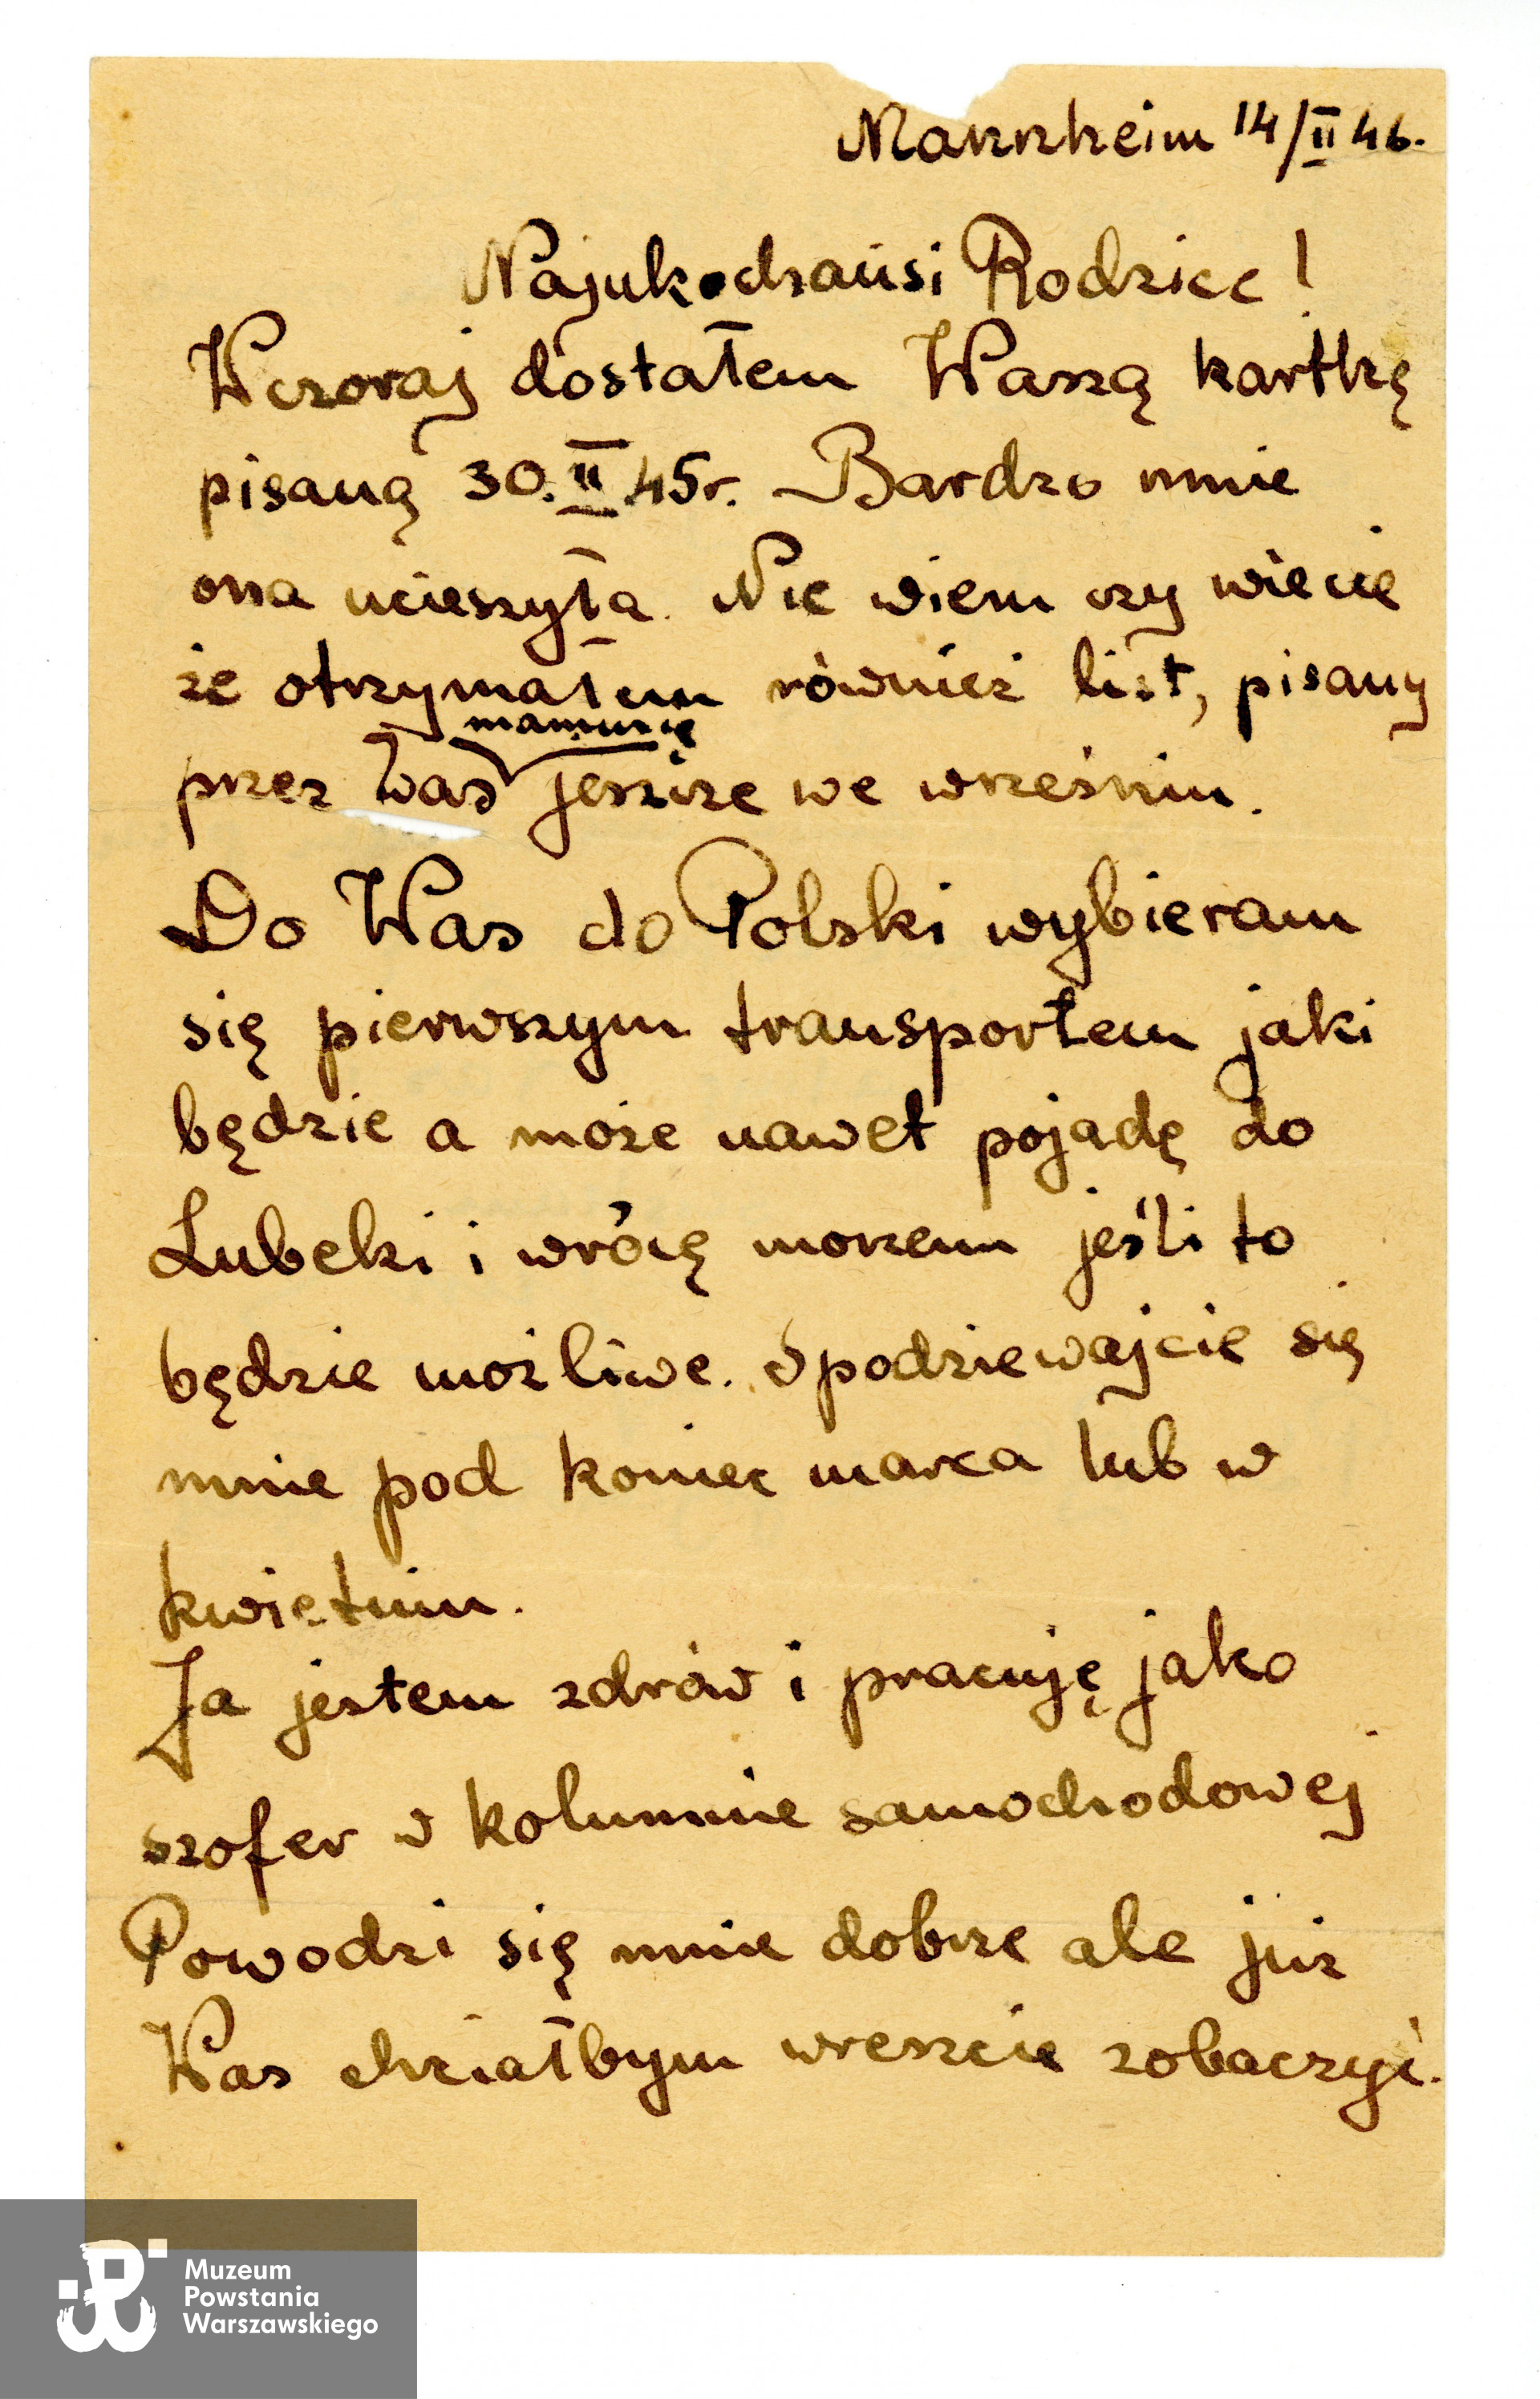 Mannheim 14/II 46.
Najukochańsi Rodzice!
Wczoraj dostałem Waszą kartkę
pisaną 30.II 45r. Bardzo mnie
ona ucieszyła. Nie wiem czy wiecie
że otrzymałem również list, pisany
mamusię
przez Was jeszcze we wrześniu.
Do Was do Polski wybieram
się pierwszym transportem jaki
będzie a może nawet pojadę do
Lubeki i wrócę morzem jeśli to
będzie możliwe. Spodziewajcie się
mnie pod koniec marca lub w
kwietniu.
Ja jestem zdrów i pracuję jako
szofer w kolumnie samochodowej
Powodzi się mnie dobrze ale już
Was chciałbym wreszcie zobaczyć.
Muzeum
Powstania
Warszawskiego